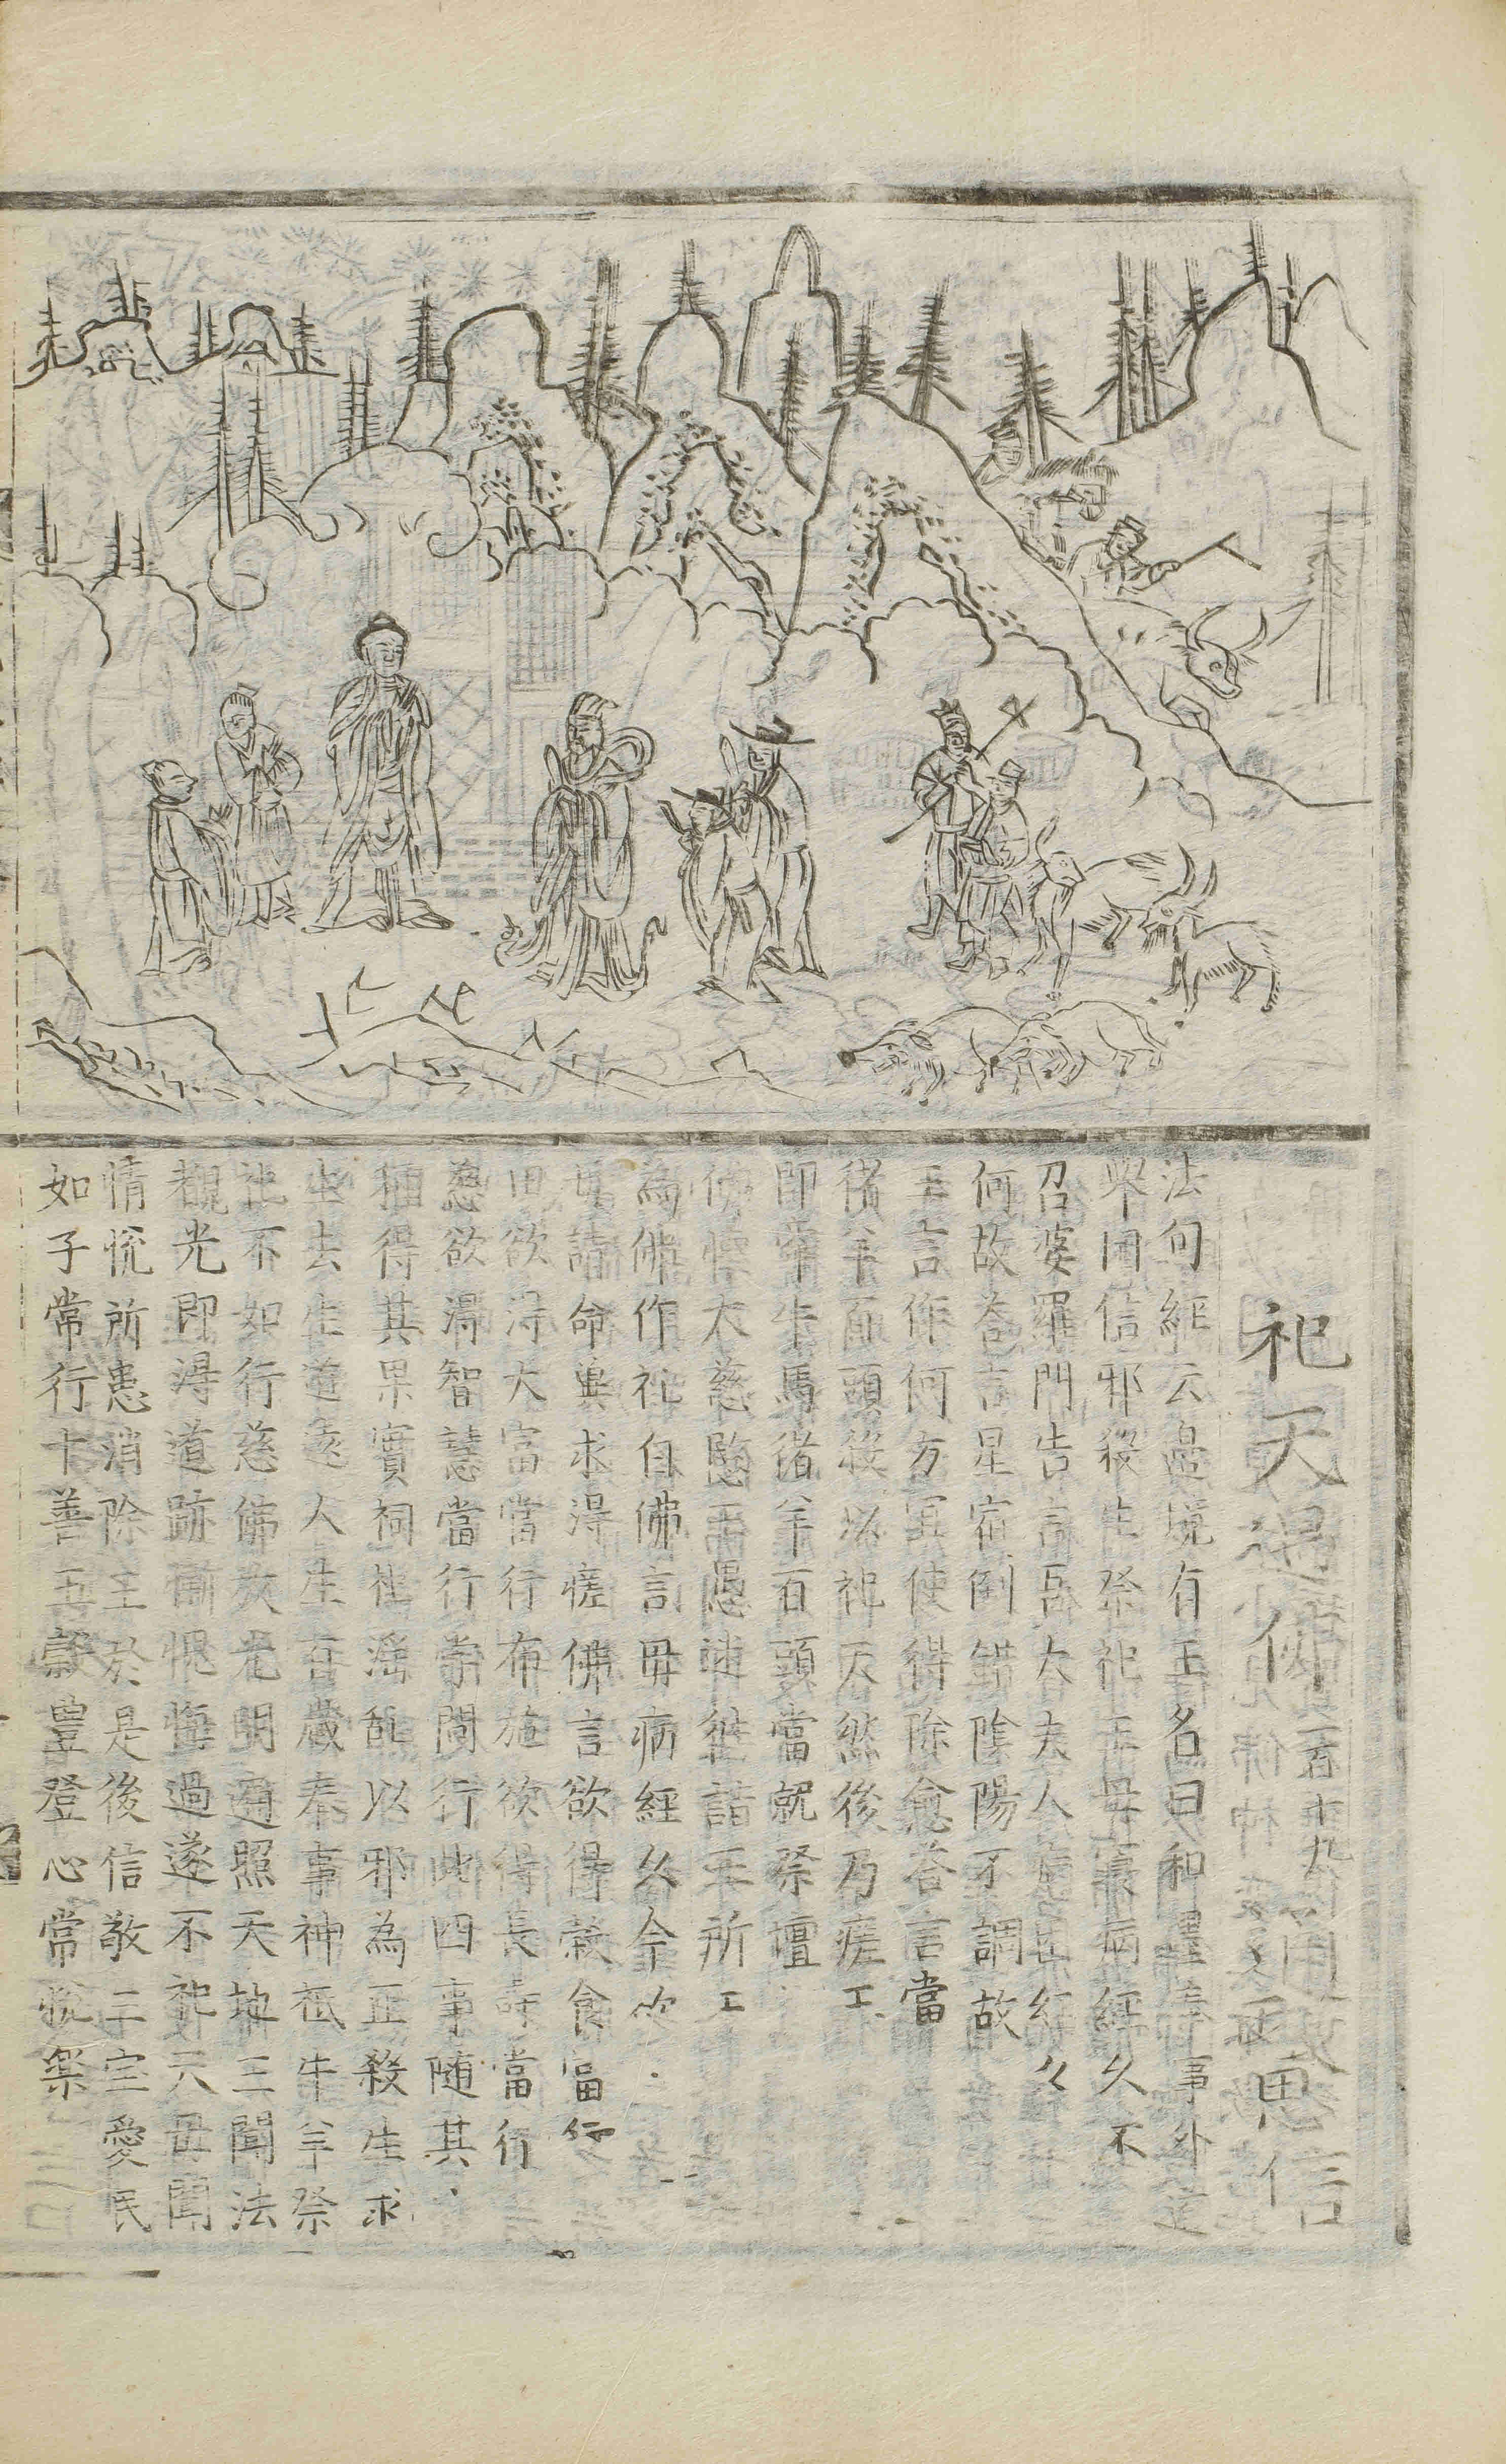 祀天
法句經云邊境有王名曰和墨奉事外道
舉國信邪殺生祭祀王母寢病經久不
召婆羅門告言吾大夫人病困經久
何故荅言星宿倒錯陰陽不調故
王言作何方宜使得除愈荅言當
猪羊百頭殺以祀天然後乃瘥王
即牽牛馬猪羊百頭當就祭壇
佛懷大慈愍王愚迷徃詣王所王
為佛作礼白佛言毋病經久今
毋請命兾求得瘥佛言欲得榖食當行
田欲淂大富當行布施欲得長壽當行
慈欲淂智慧當行學問行此四事随其
種得其果實祠祀滛乱以邪為正殺生求
生去生道逺人生百歲奉事神祇牛羊祭
祀不如行慈佛放光明遍照天地三聞法
覩光即淂道跡慚愧悔過遂不祀天毋聞
情恱所患消除王於是後信敬三宝愛民
如子常行十善五榖豊登心常恱樂